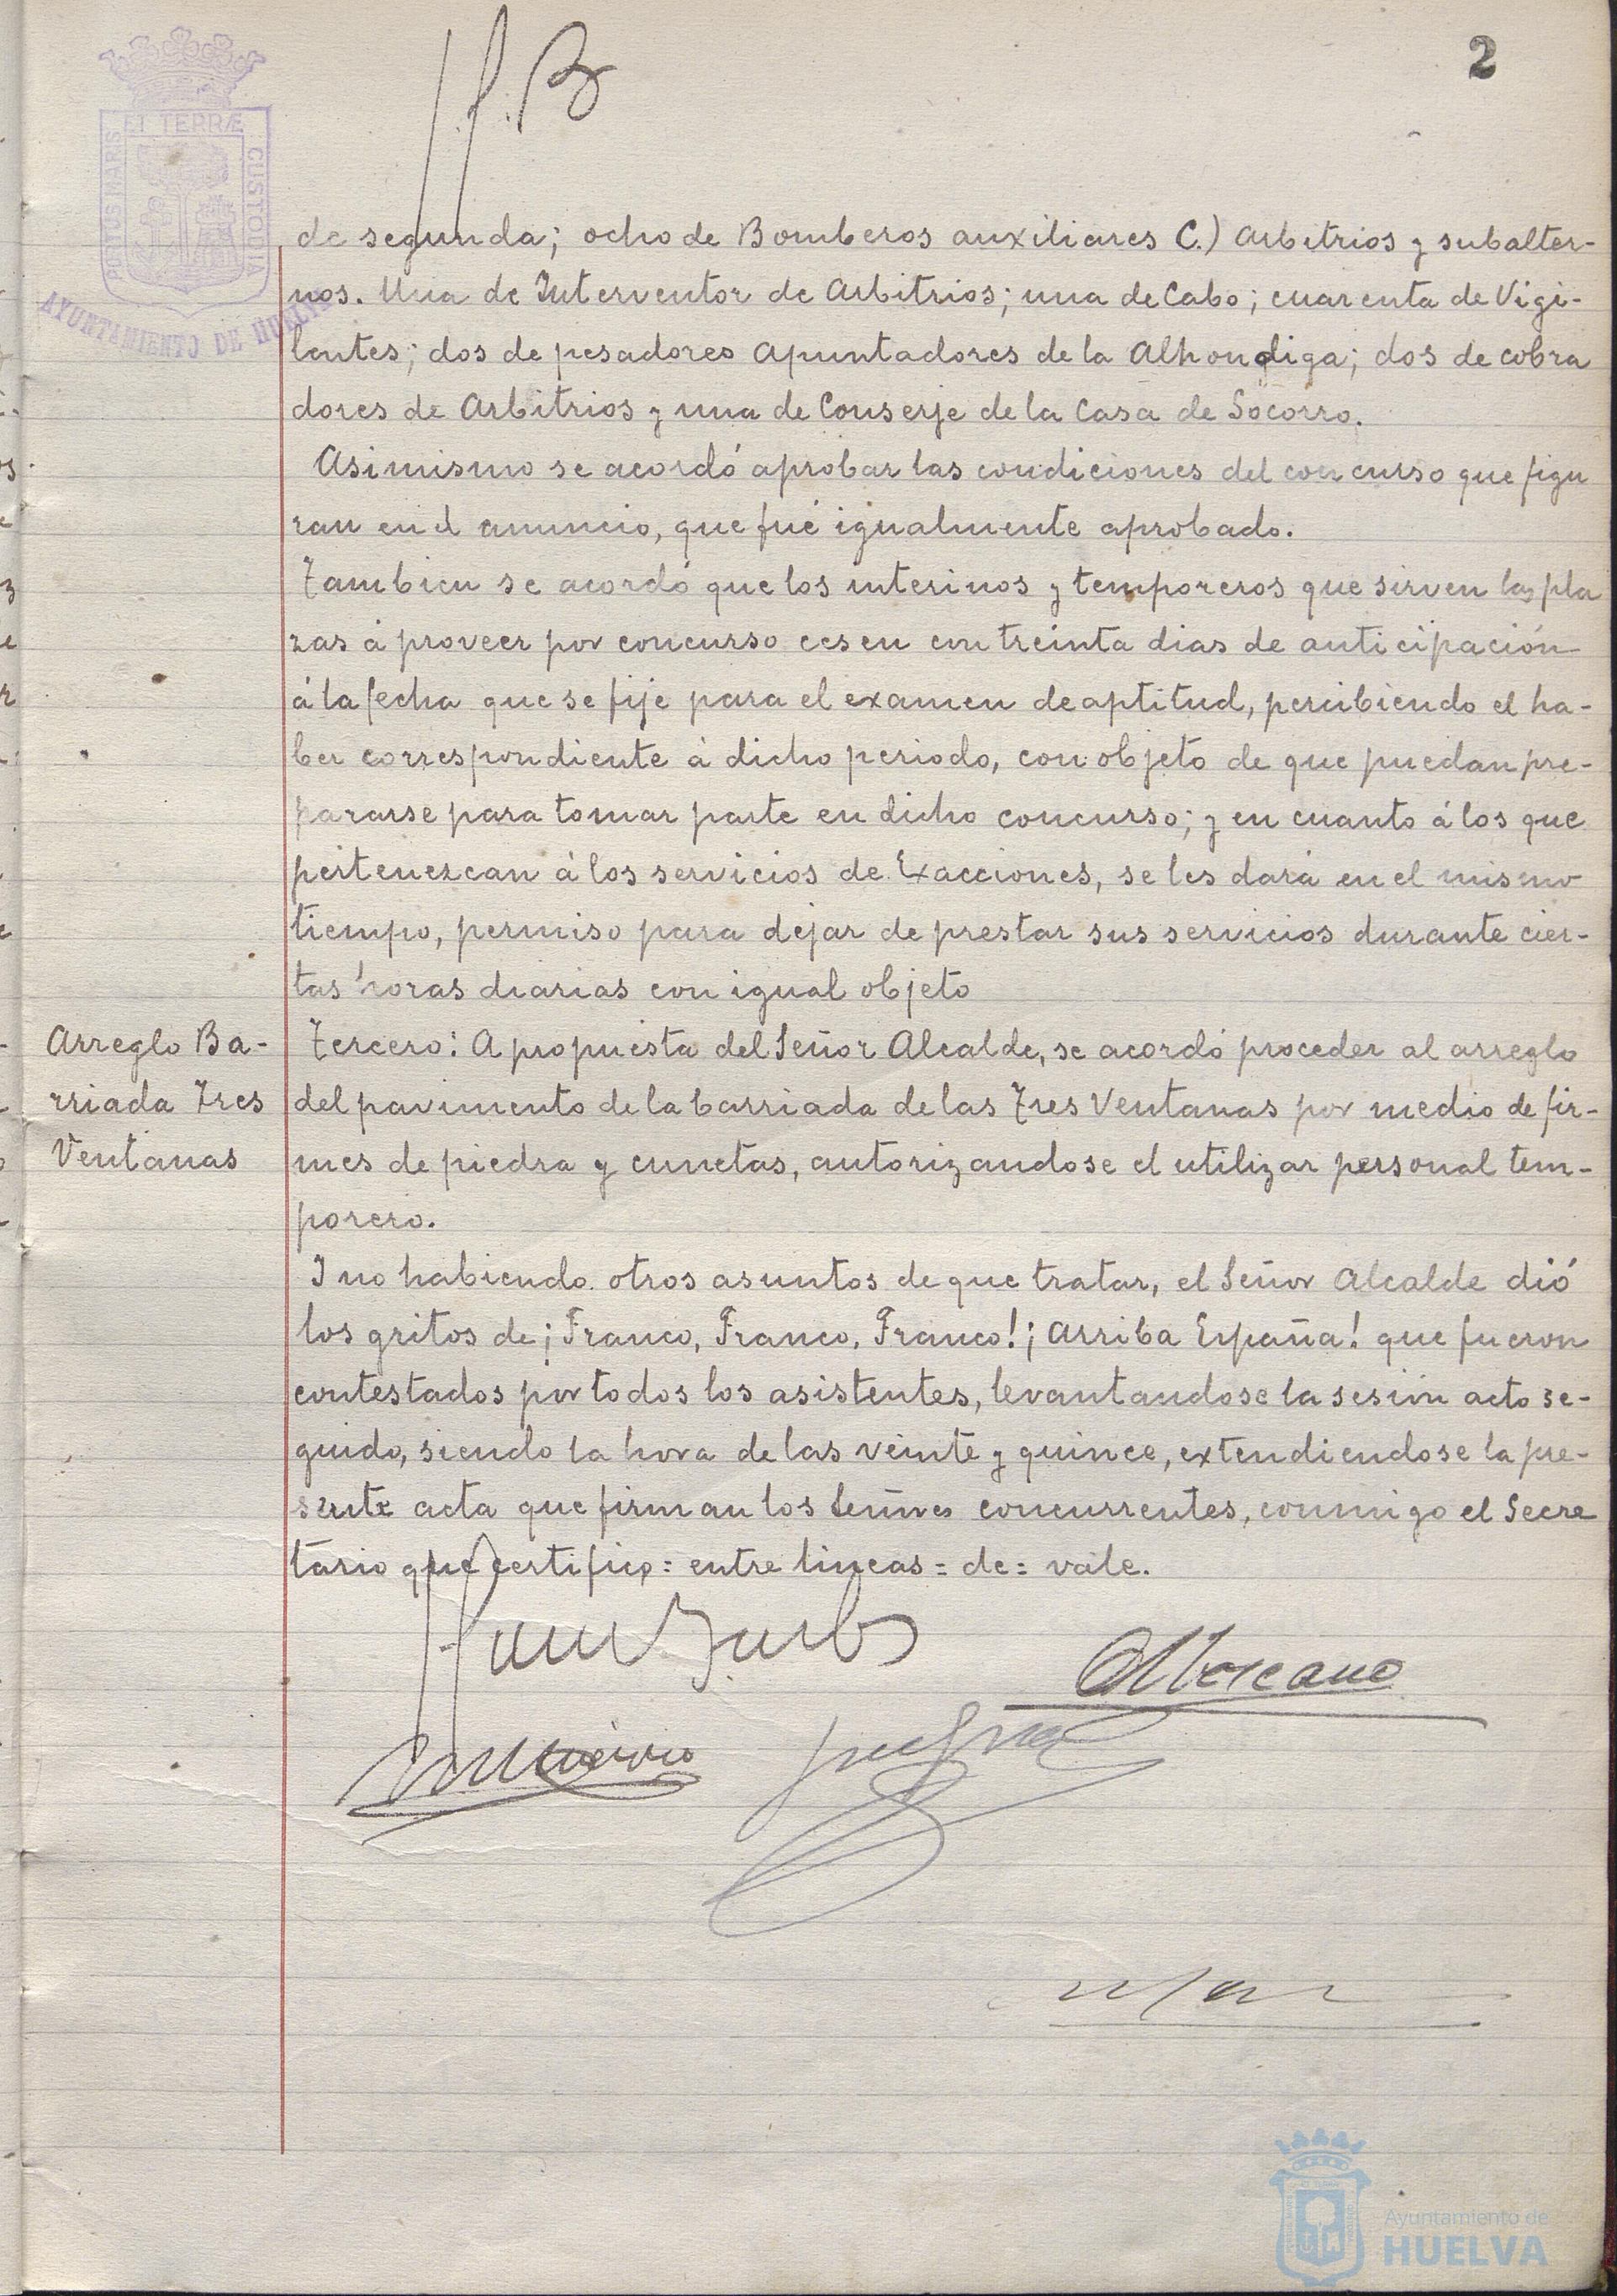 2
J. B
ET TERRÆ
PORTUS MARIS
CUSTODIA
AYUNTAMIENTO DE HUELVA
de segunda; ocho de Bomberos auxiliares C.) Arbitrios y subalter-
nos. Una de Interventor de Arbitrios; una de Cabo; cuarenta de Vigi-
lantes; dos de pesadores apuntadores de la Alhondiga; dos de cobra
dores de Arbitrios y una de Conserje de la Casa de Socorro.
Asimismo se acordó aprobar las condiciones del concurso que figu
ran en el anuncio, que fué igualmente aprobado.
Tambien se acordó que los interinos y temporeros que sirven las pla
zas á proveer por concurso cesen con treinta dias de anticipación
á la fecha que se fije para el examen de aptitud, percibiendo el ha-
ber correspondiente á dicho periodo, con objeto de que puedan pre-
pararse para tomar parte en dicho concurso; y en cuanto á los que
pertenezcan á los servicios de Exacciones, se les dará en el mismo
tiempo, permiso para dejar de prestar sus servicios durante cier-
tas horas diarias con igual objeto
Arreglo Ba-
rriada Tres
Ventanas
Tercero: A propuesta del Señor Alcalde, se acordó proceder al arreglo
del pavimento de la barriada de las Tres Ventanas por medio de fir-
mes de piedra y cunetas, autorizandose el utilizar personal tem-
porero.
Y no habiendo otros asuntos de que tratar, el Señor Alcalde dió
los gritos de ¡Franco, Franco, Franco! ¡Arriba España! que fueron
contestados por todos los asistentes, levantandose la sesión acto se-
guido, siendo la hora de las veinte y quince, extendiendose la pre-
sente acta que firman los Señores concurrentes, conmigo el Secre
tario que certifico = entre lineas = de = vale.
Ayuntamiento de
HUELVA